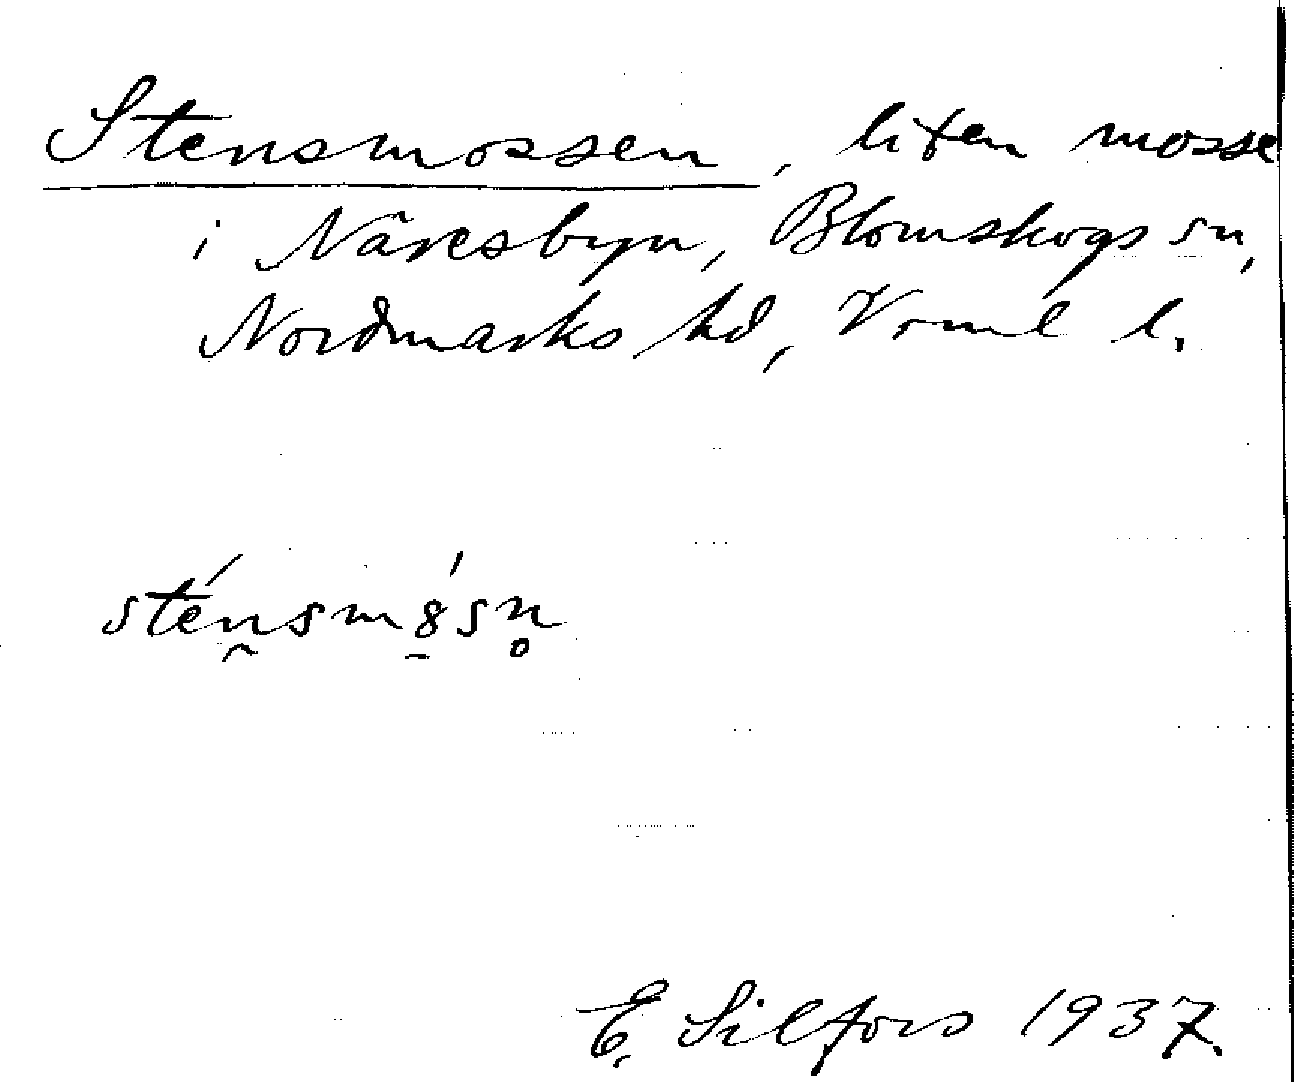 Stensmossen, liten mosse
i Näresbyn, Blomskogs sn,
Nordmarks hd, Vrml l.
sténsm8́sn̥
E. Silfors 1937.